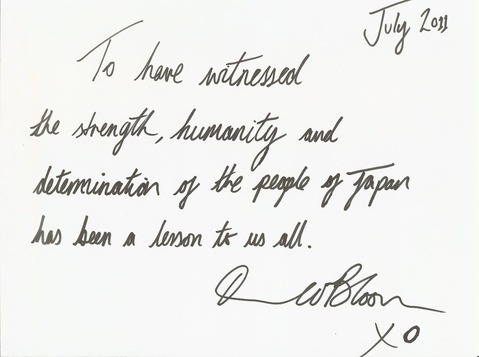 July 2011
To have witnessed
the strength, humanity and
determination of the people of Japan
has been a lesson to us all.
Bloom
XO